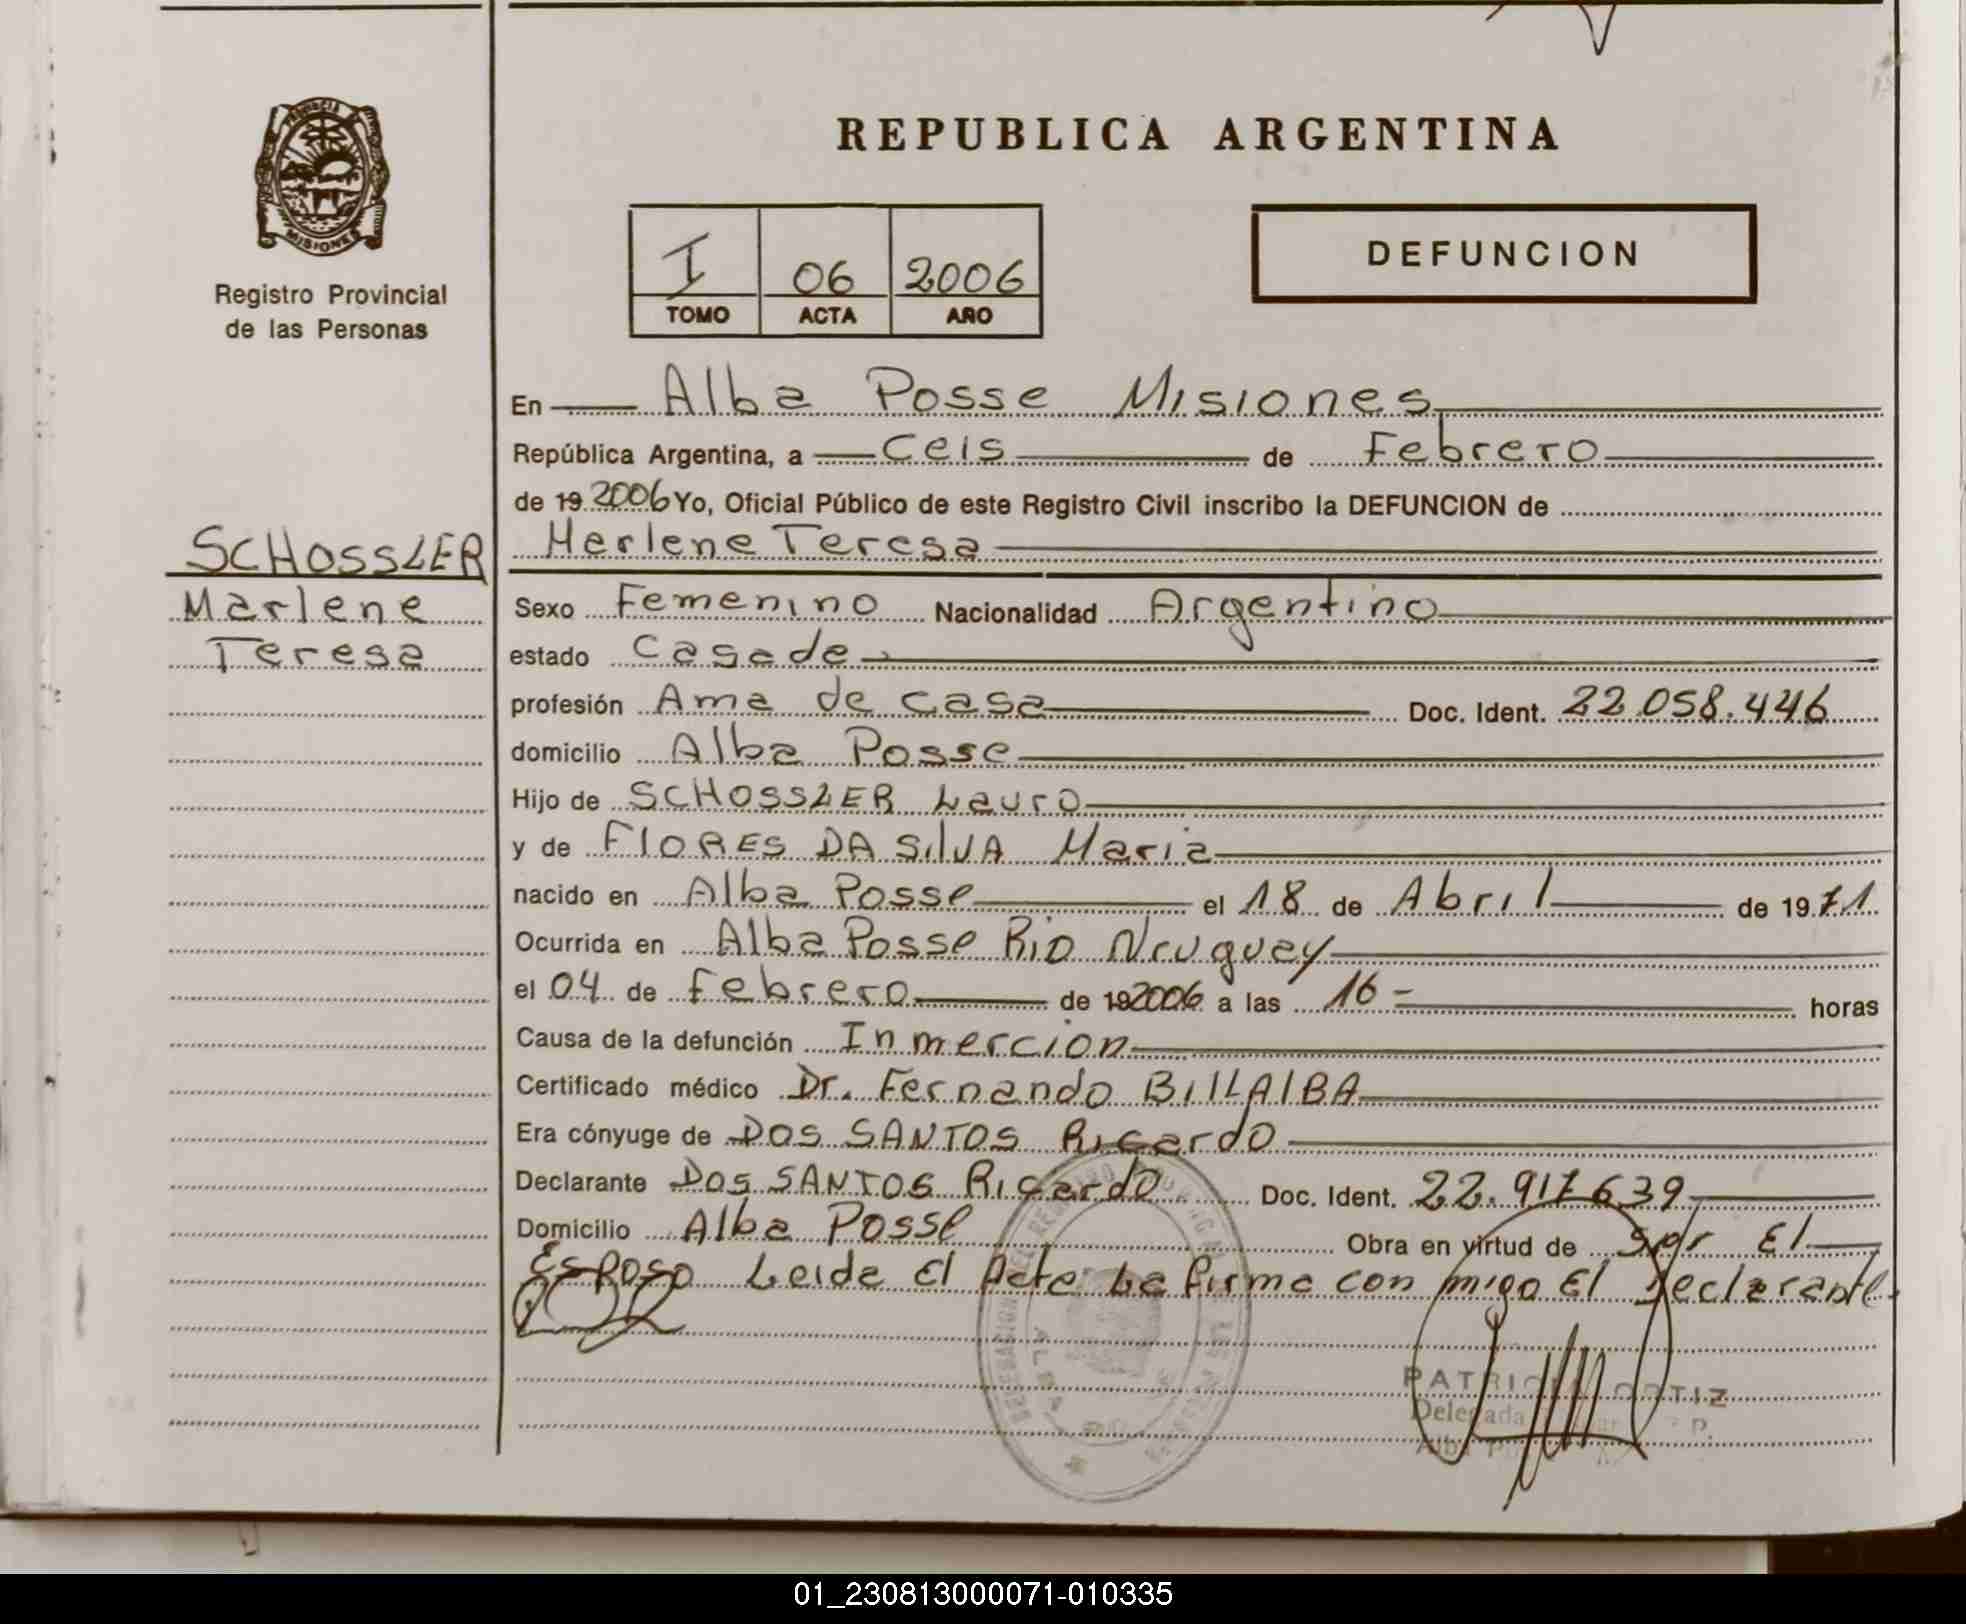 PROVINCIA DE
MISIONES
Registro Provincial
de las Personas
REPUBLICA ARGENTINA
I 06 2006
TOMO ACTA AÑO
DEFUNCION
En Alba Posse Misiones
República Argentina, a Ceis de Febrero
de 19 2006 Yo, Oficial Público de este Registro Civil inscribo la DEFUNCION de
SCHOSSLER
Marlene Teresa
Marlene
Teresa
Sexo Femenino Nacionalidad Argentino
estado Casada
profesión Ama de casa Doc. Ident. 22.058.446
domicilio Alba Posse
Hijo de SCHOSSLER Lauro
y de FlORES DA SilVA Maria
nacido en Alba Posse el 18 de Abril de 1971
Ocurrida en Alba Posse Rio Uruguay
el 04 de Febrero de 19 2006 a las 16 - horas
Causa de la defunción Inmercion
Certificado médico Dr. Fernando BIllAlBA
Era cónyuge de DOS SANTOS Ricardo
Declarante Dos SANTOS Ricardo Doc. Ident. 22.917639
Domicilio Alba Posse Obra en virtud de Ser El
Esposo Leida El Acta La firma con migo El Declarante.
PATRICIA ORTIZ
Delegada
Alba
01_230813000071-010335